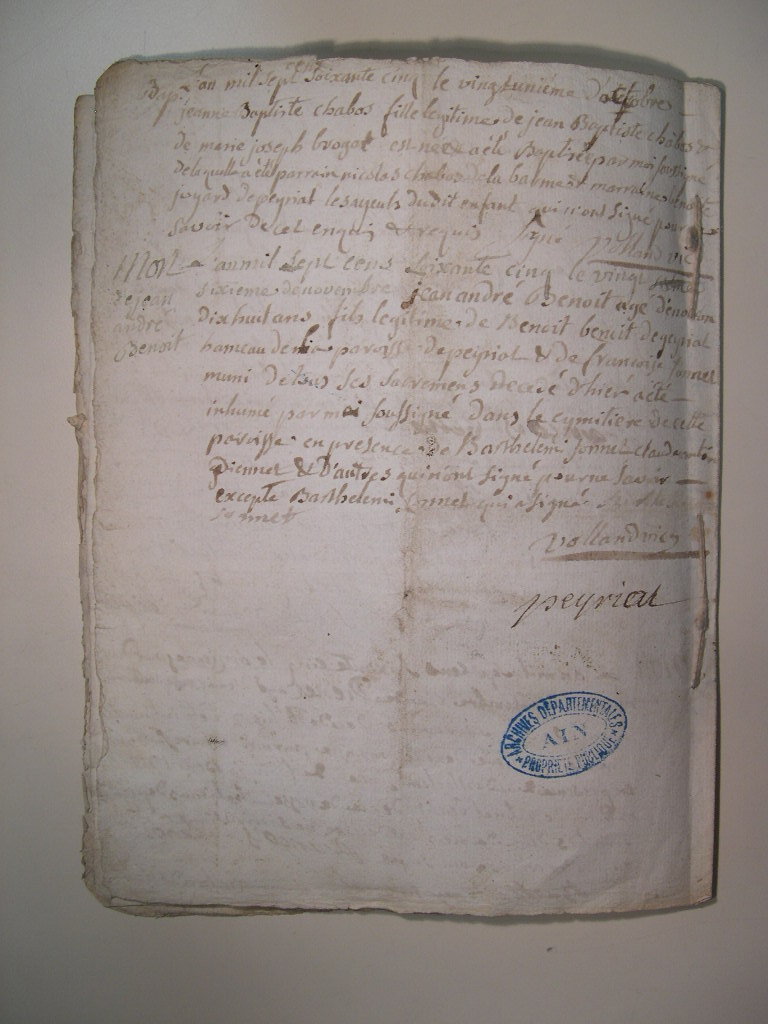 Bap. l'an mil sept cens soixante cinq le vingtunième d'octobre
jeanne Baptiste chabos fille legitime de jean Baptiste chabos &
de marie joseph brogat est née a été Baptisée par moi soussigné
de laquelle a été parrain nicolas chabos de la barme & marraine benoite
joyard de peyriat les ayeuls dudit enfant qui n'ont signé pour ne
savoir de ce enquis & requis signé vollandvic
Mort l'an mil sept cens soixante cinq le vingt
de jean sixieme de novembre jean andré Benoit agé d'environ
andré dixhuit ans fils legitime de Benoit benoit de peyriat
Benoit hameau de paroisse de peyriat & de françoise sonnet
muni de tous ses sacremens decedé d'hier a été
inhumé par moi soussigné dans le cymitiere de cette
paroisse en presence de Barthelemi sonnet claude
piennet & d'autres qui n'ont signé pour ne savoir
excepté Barthelemi sonnet qui a signé
sonnet
vollandvic
peyriat
ARCHIVES DÉPARTEMENTALES
AIN
PROPRIÉTÉ PUBLIQUE